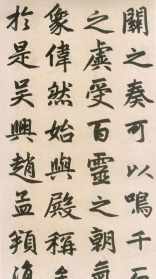 關之奏可以鳴千石
之虡受百靈之朝氣
象偉然始與殿稱
於是吳興趙孟頫